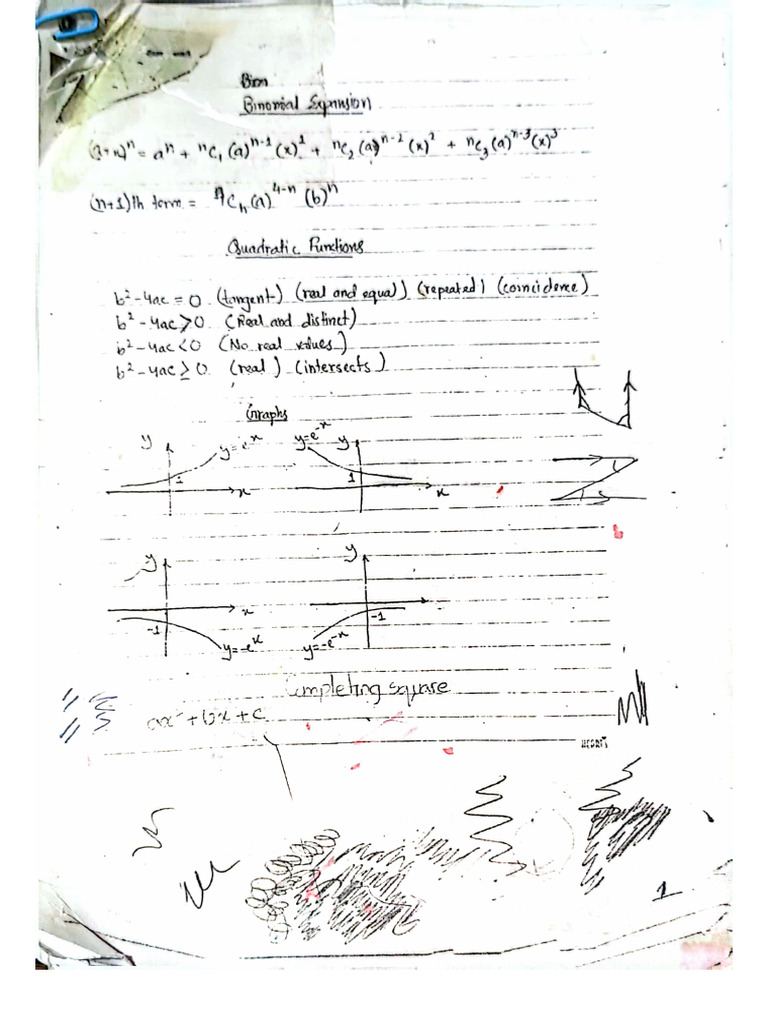 Bim
Binomial Expansion
(a+x)ⁿ = aⁿ + ⁿC₁(a)ⁿ⁻¹(x)¹ + ⁿC₂(a)ⁿ⁻²(x)² + ⁿC₃(a)ⁿ⁻³(x)³
(n+1)th term = ⁿCₙ(a)⁴⁻ⁿ(b)ⁿ
Quadratic Functions
b²-4ac = 0 (tangent) (real and equal) (repeated) (coincidence)
b²-4ac > 0 (Real and distinct)
b²-4ac < 0 (No real values)
b²-4ac ≥ 0 (real) (intersects)
Graphs
y y=eˣ 1 x
y=e⁻ˣ y 1 x
y -1 x y=-eˣ
y -1 y=-e⁻ˣ
Completing square
ax²+bx+c
1